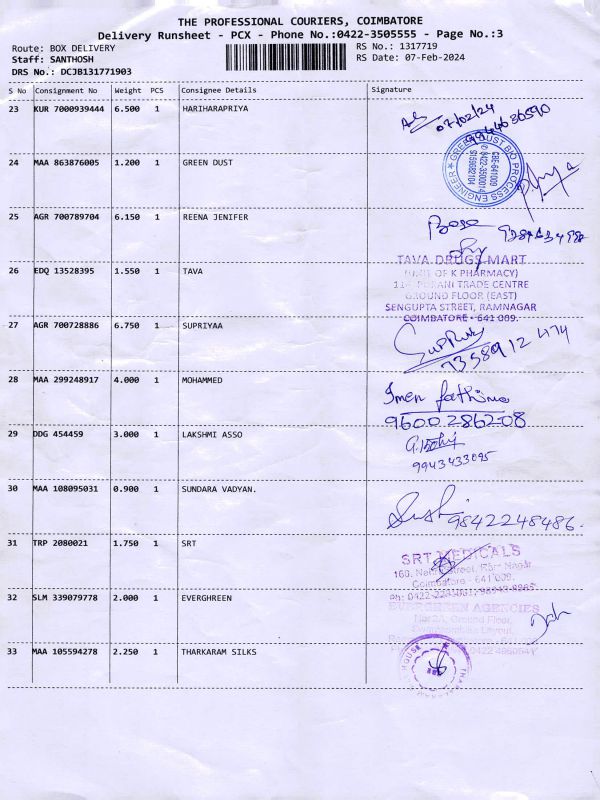 THE PROFESSIONAL COURIERS, COIMBATORE
Delivery Runsheet - PCX - Phone No.:0422-3505555 - Page No.:3
Route: BOX DELIVERY
RS No.: 1317719
Staff: SANTHOSH
RS Date: 07-Feb-2024
DRS No.: DCJB131771903
S No Consignment No Weight PCS Consignee Details Signature
23 KUR 7000939444 6.500 1 HARIHARAPRIYA
07/02/24
24 MAA 863876005 1.200 1 GREEN DUST
GREEN DUST BIO PROCESS ENGINEER
CBE-641009
25 AGR 700789704 6.150 1 REENA JENIFER
26 EDQ 13528395 1.550 1 TAVA
TAVA DRUGS MART
(UNIT OF K PHARMACY)
TRADE CENTRE
GROUND FLOOR (EAST)
SENGUPTA STREET, RAMNAGAR
COIMBATORE - 641 009.
27 AGR 700728886 6.750 1 SUPRIYAA
73589 12 474
28 MAA 299248917 4.000 1 MOHAMMED
Imen fathima
9600 286208
29 DDG 454459 3.000 1 LAKSHMI ASSO
9943433095
30 MAA 108095031 0.900 1 SUNDARA VADYAN.
9842248486.
31 TRP 2080021 1.750 1 SRT
SRT MEDICALS
Street, Ram Nagar,
Coimbatore - 641 009.
32 SLM 339079778 2.000 1 EVERGHREEN
EVERGREEN AGENCIES
Ground Floor,
33 MAA 105594278 2.250 1 THARKARAM SILKS